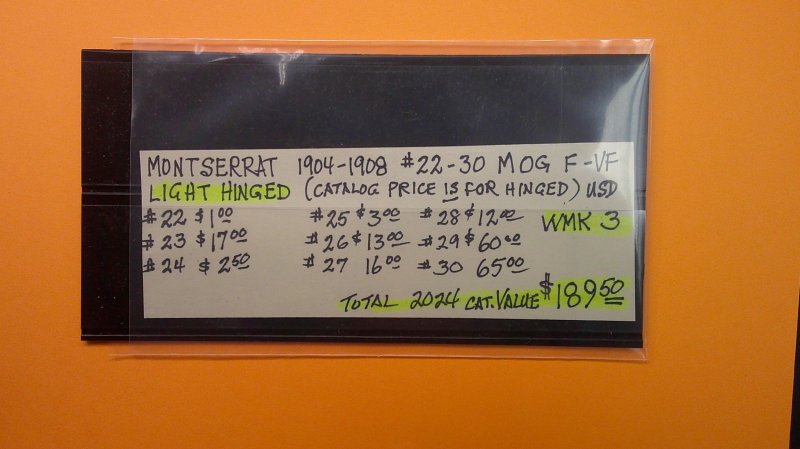 MONTSERRAT 1904-1908 #22-30 MOG F-VF
LIGHT HINGED (CATALOG PRICE IS FOR HINGED) USD
#22 $1.00 #25 $3.00 #28 $12.00 WMK 3
#23 $17.00 #26 $13.00 #29 $60.00
#24 $2.50 #27 16.00 #30 65.00
TOTAL 2024 CAT. VALUE $189.50